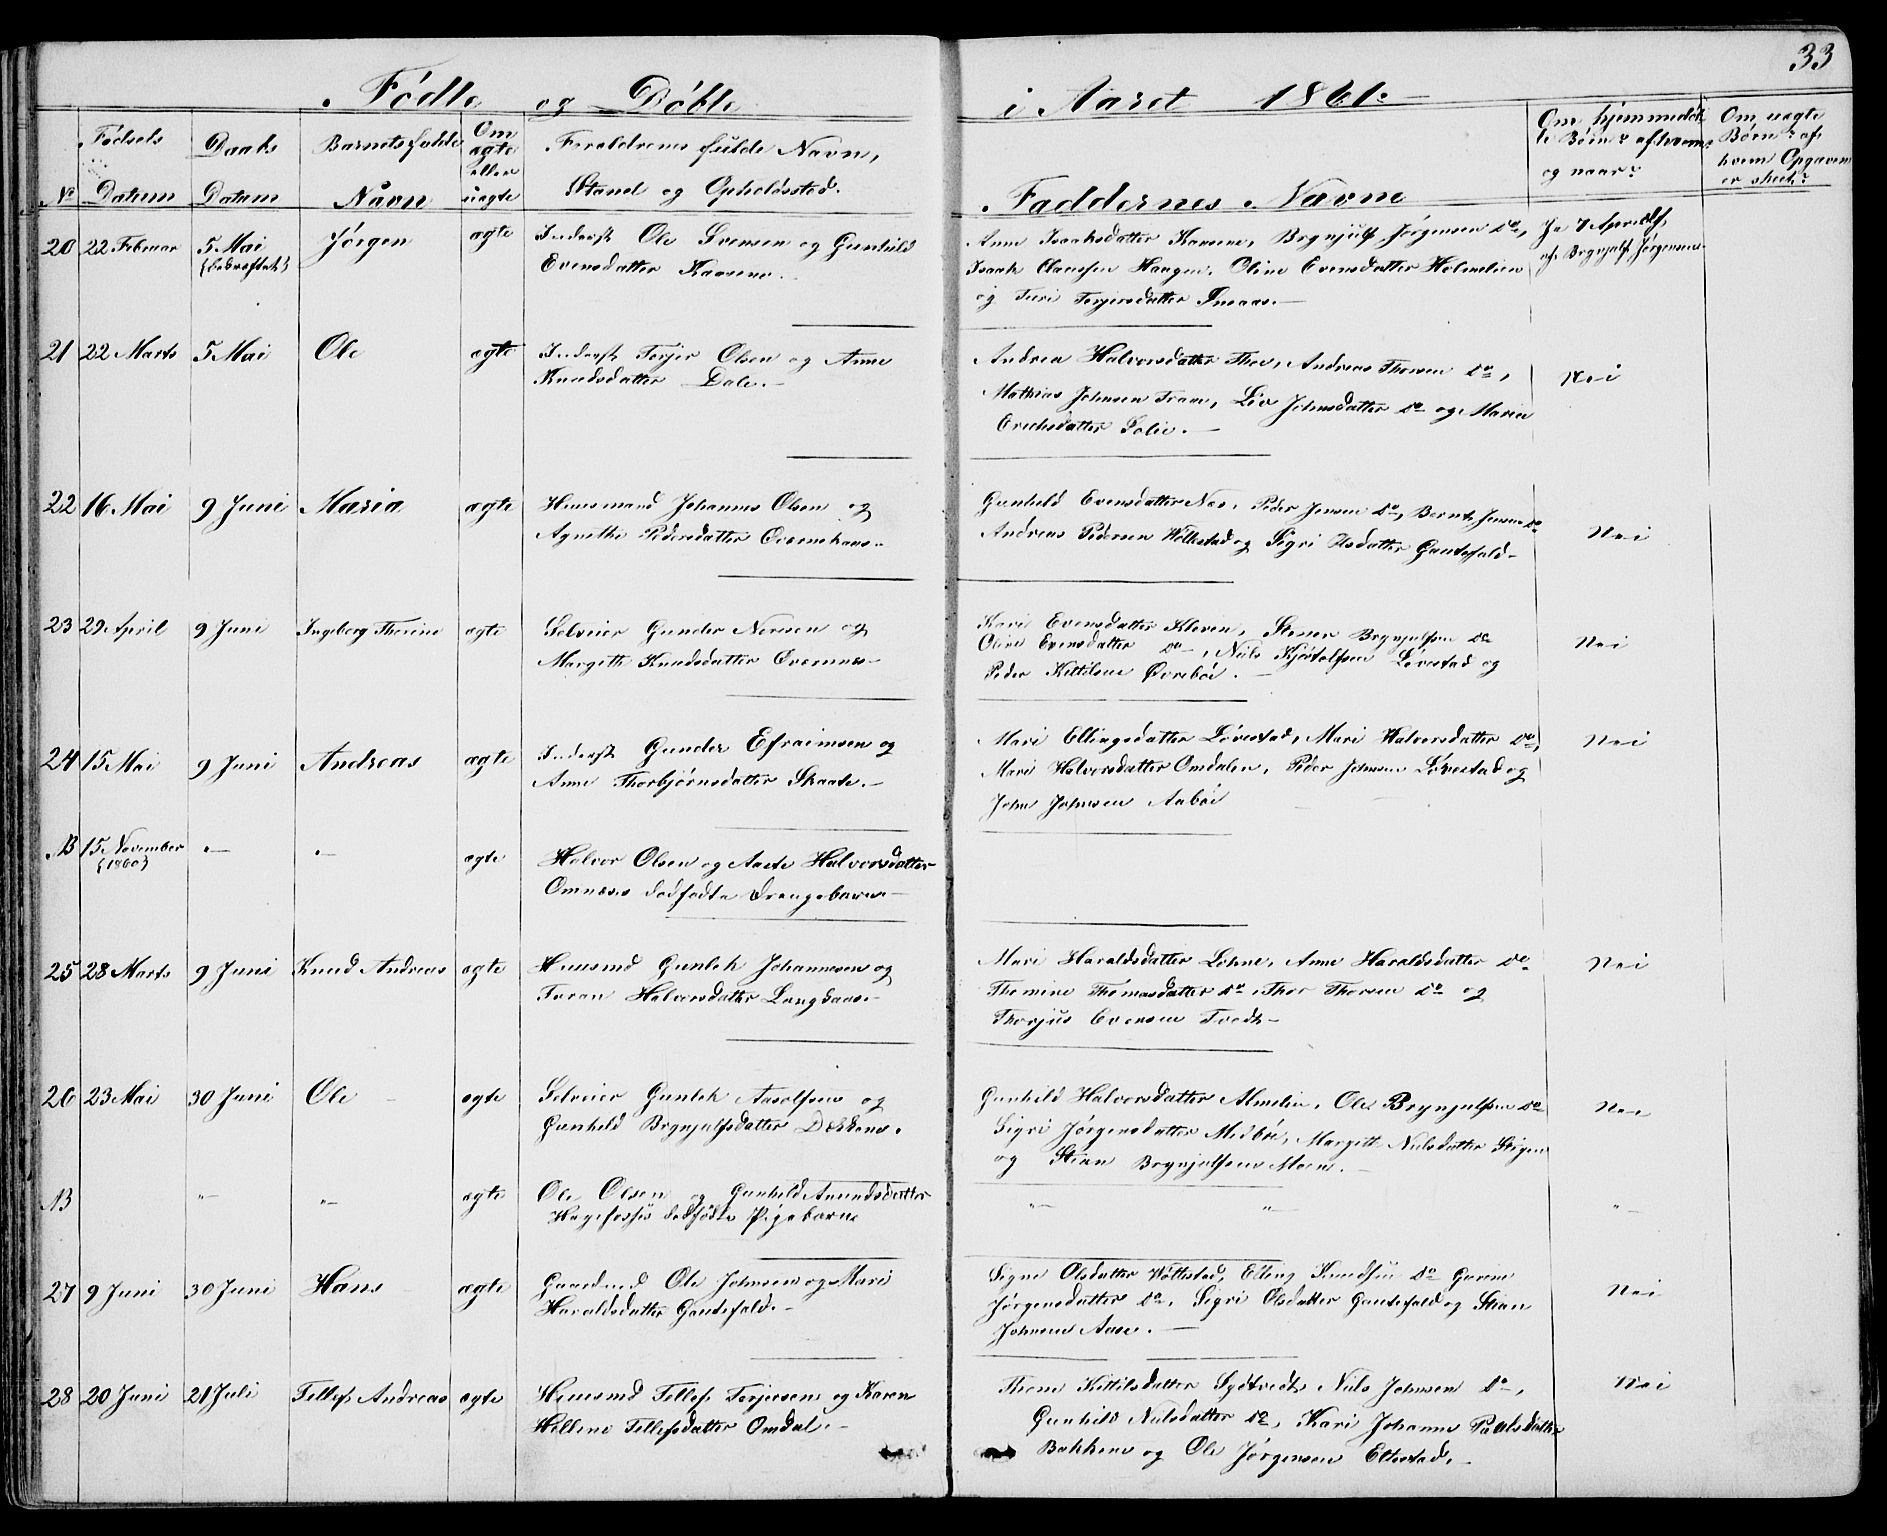 33
Födte og Döbte i Aaret 1861.
No
Födsels Datum
Daabs Datum
Barnets fulde Navn
Om ægte eller uægte
Foraldrenes fulde Navn, Stand og Opholdssted.
Faddernes Navne
Om hjemmedöbte Börn? af hvem? og naar?
Om uægte Börn? af hvem Opgaven er skeet?
20 22 Februar 5 Mai Jörgen ægte Inderst Ole Svensen og Gunhild
{bekræftet}
Evensdatter Kaasene.
Anne Isaaksdatter Kaasene, Brynjulf Jörgensen do,
Isaak Clausen Haugen, Oline Evensdatter Holmelien
og Turi Terjersdatter Snaas.
Ja 7 April
af Brynjulf Jörgensen
21 22 Marts 5 Mai Ole ægte Inderst Terjer Olsen og Anne
Knudsdatter Dale.
Andrea Halvorsdatter Thoe, Andreas Thorsen do,
Mathias Johnsen Traae, Liv Johnsdatter do og Maria
Erichsdatter Solie.
Nei
22 16 Mai 9 Juni Maria ægte Huusmand Johannes Olsen og
Agnethe Pedersdatter
Gunhild Evensdatter Næs, Peder Jensen do, Bernt Jensen do
Andreas Pedersen Wöllestad og Sigri Olsdatter Gautefald
Nei
23 29 April 9 Juni Ingeborg Thorine ægte Selveier Gunder Neresen og
Margith Knudsdatter Evernes
Kari Evensdatter Kleven, Stener Brynjulsen do
Oline Evensdatter do, Niels Kjöstolfsen Lövestad og
Peder Kittilsen Övreböe.
Nei
24 15 Mai 9 Juni Andreas ægte Inderst Gunder Efraimsen og
Anne Thorbjörnsdatter Skaate.
Mari Ellingsdatter Lövestad, Mari Halvorsdatter do,
Mari Halvorsdatter Omdalen, Peder Johnsen Lövestad og
John Johnsen Aaböe
Nei
NB 15 November ægte Halvor Olsen og Aaste Halvorsdatter
{1860}
Omnæs's dödfödte Drengebarn
25 28 Marts 9 Juni Knud Andreas ægte Huusmd Gunlek Johannesen og
Turan Halvorsdatter Langdaas.
Mari Haraldsdatter Lohne, Anne Haraldsdatter do
Thomine Thomasdatter do, Thor Thorsen do og
Thorjus Evensen Tvedt
Nei
26 23 Mai 30 Juni Ole ægte Selveier Gunlek Aasolfsen og
Gunhild Brynjulfsdatter Dekkene.
Gunhild Halvorsdatter Almelien, Ole Brynjulsen do
Sigri Jörgensdatter Midböe, Margit Nielsdatter Stigen
og Stian Brynjulsen Moen.
Nei
NB ægte Ole Olsen og Gunhild Amundsdatter
Hegefosse's dödfödte Pigebarn
27 9 Juni 30 Juni Hans ægte Gaardmd Ole Johnsen og Mari
Haraldsdatter Gautefald.
Signe Olsdatter Wöllestad, Elling Knudsen do Gurine
Jörgensdatter do, Sigri Olsdatter Gautefald og Stian
Johnsen Aase.
Nei
28 20 Juni 21 Juli Tellef Andreas ægte Huusmd Tellef Terjesen og Karen
Hellene Tellefsdatter Omdal.
Thone Kittilsdatter Sydtvedt, Niels Johnsen do,
Gunhild Nielsdatter do, Kari Johanne Paalsdatter
Bakkene og Ole Jörgensen Ettestad.
Nei